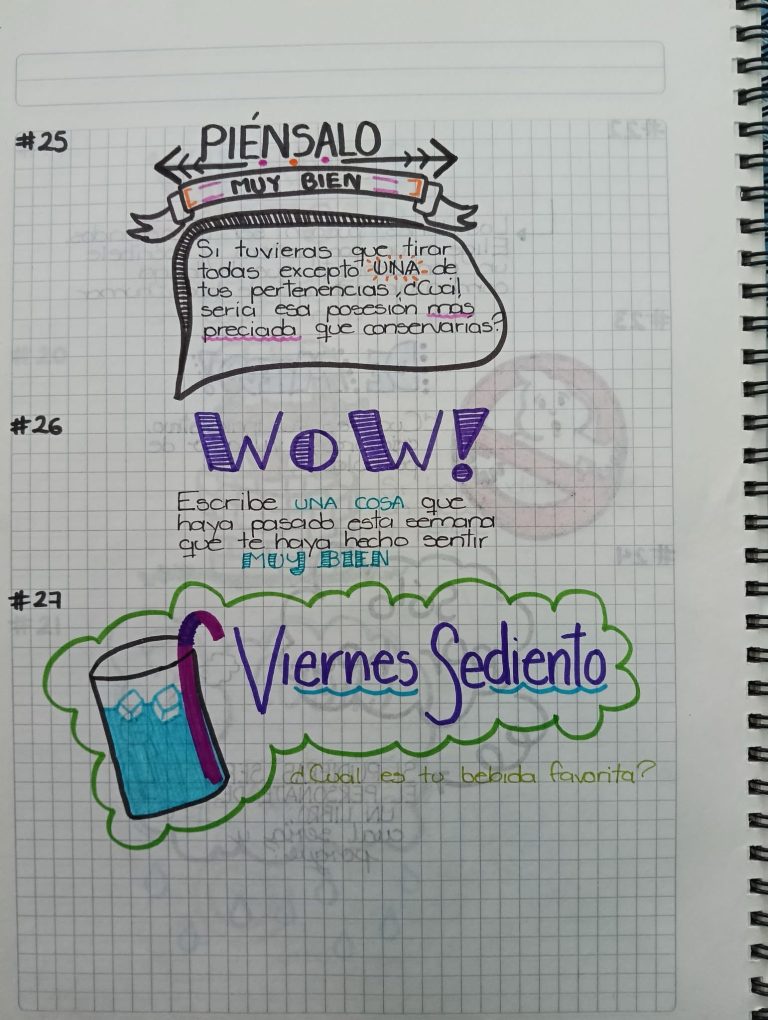 #25
PIÉNSALO
MUY BIEN
Si tuvieras que tirar
todas excepto UNA de
tus pertenencias, ¿Cuál
seria esa posesión mas
preciada que conservarías?
#26
WOW!
Escribe UNA COSA que
haya pasado esta semana
que te haya hecho sentir
MUY BIEN
#27
Viernes Sediento
¿Cual es tu bebida favorita?